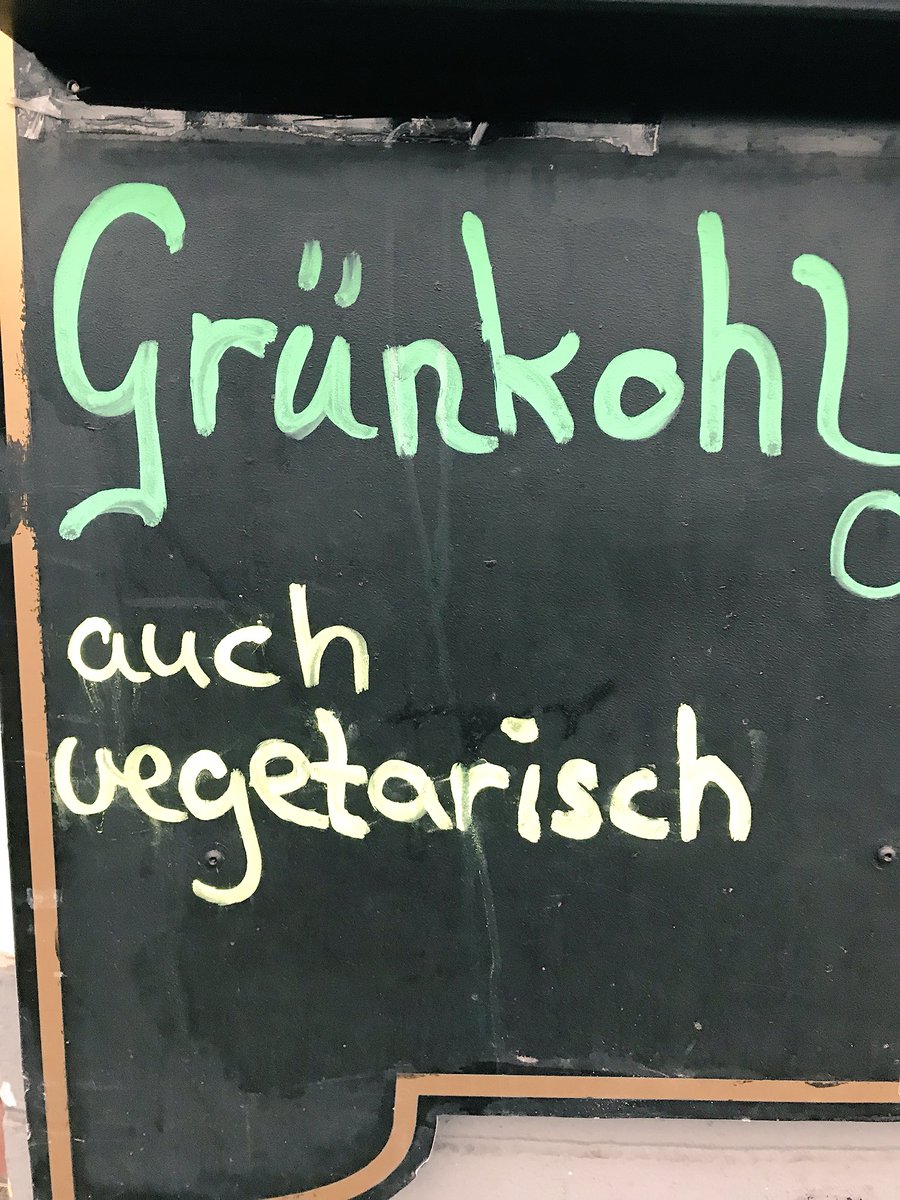 Grünkohl
auch
vegetarisch